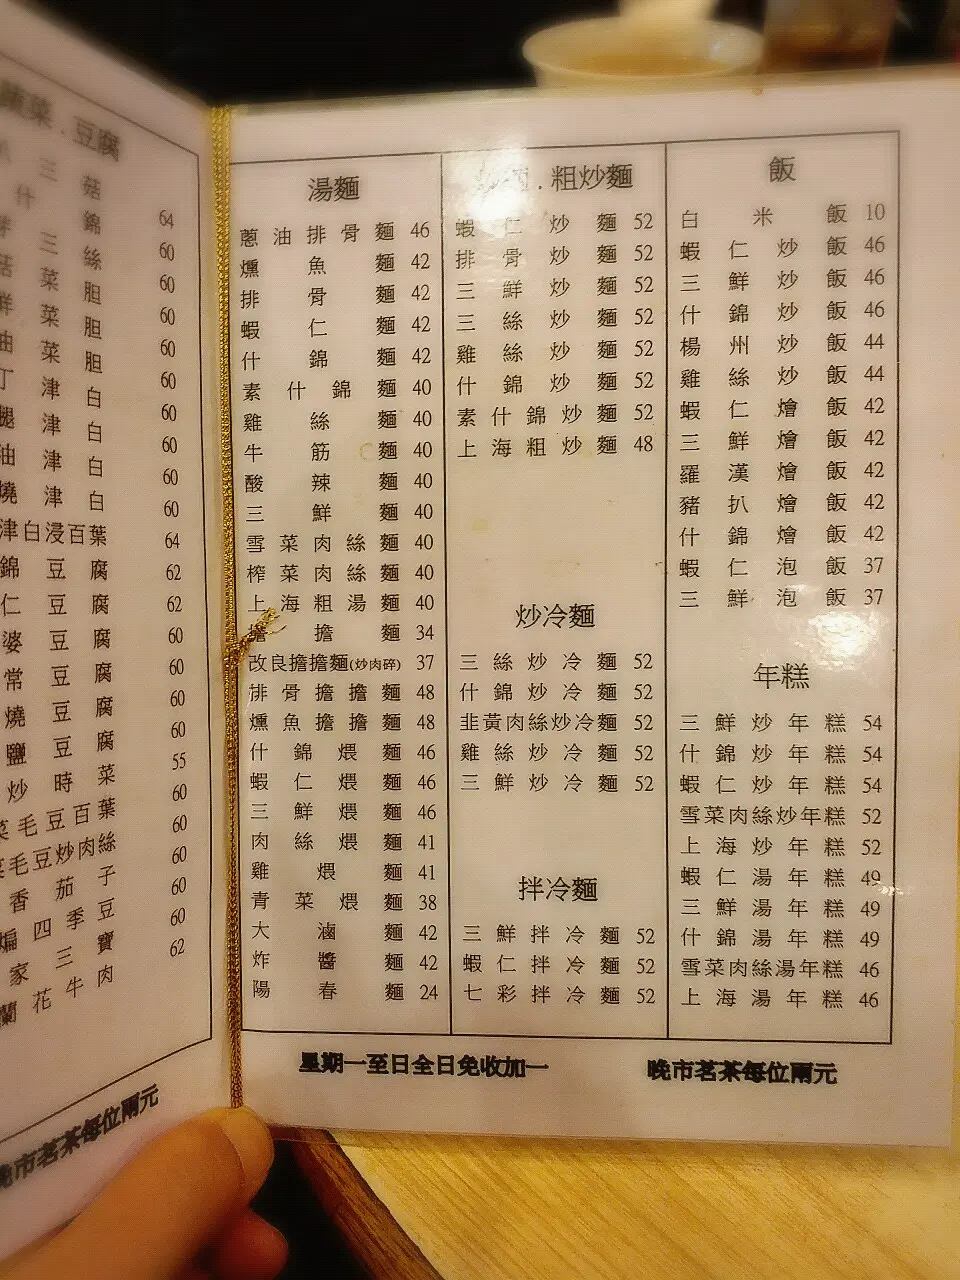 蔬菜.豆腐
三菇 64
什錦 60
三絲 60
菜胆 60
菜胆 60
菜胆 60
丁津白 60
津白 60
油津白 60
燒津白 60
津白浸百葉 64
錦豆腐 62
仁豆腐 62
婆豆腐 60
常豆腐 60
燒豆腐 60
鹽豆腐 60
炒時菜 55
菜毛豆百葉 60
菜毛豆炒肉絲 60
香茄子 60
煸四季豆 60
家三寶 60
蘭花牛肉 62
晚市茗茶每位兩元
湯麵
蔥油排骨麵 46
燻魚麵 42
排骨麵 42
蝦仁麵 42
什錦麵 42
素什錦麵 40
雞絲麵 40
牛筋麵 40
酸辣麵 40
三鮮麵 40
雪菜肉絲麵 40
榨菜肉絲麵 40
上海粗湯麵 40
擔擔麵 34
改良擔擔麵(炒肉碎) 37
排骨擔擔麵 48
燻魚擔擔麵 48
什錦煨麵 46
蝦仁煨麵 46
三鮮煨麵 46
肉絲煨麵 41
雞煨麵 41
青菜煨麵 38
大滷麵 42
炸醬麵 42
陽春麵 24
.粗炒麵
蝦仁炒麵 52
排骨炒麵 52
三鮮炒麵 52
三絲炒麵 52
雞絲炒麵 52
什錦炒麵 52
素什錦炒麵 52
上海粗炒麵 48
炒冷麵
三絲炒冷麵 52
什錦炒冷麵 52
韭黃肉絲炒冷麵 52
雞絲炒冷麵 52
三鮮炒冷麵 52
拌冷麵
三鮮拌冷麵 52
蝦仁拌冷麵 52
七彩拌冷麵 52
飯
白米飯 10
蝦仁炒飯 46
三鮮炒飯 46
什錦炒飯 46
楊州炒飯 44
雞絲炒飯 44
蝦仁燴飯 42
三鮮燴飯 42
羅漢燴飯 42
豬扒燴飯 42
什錦燴飯 42
蝦仁泡飯 37
三鮮泡飯 37
年糕
三鮮炒年糕 54
什錦炒年糕 54
蝦仁炒年糕 54
雪菜肉絲炒年糕 52
上海炒年糕 52
蝦仁湯年糕 49
三鮮湯年糕 49
什錦湯年糕 49
雪菜肉絲湯年糕 46
上海湯年糕 46
星期一至日全日免收加一
晚市茗茶每位兩元